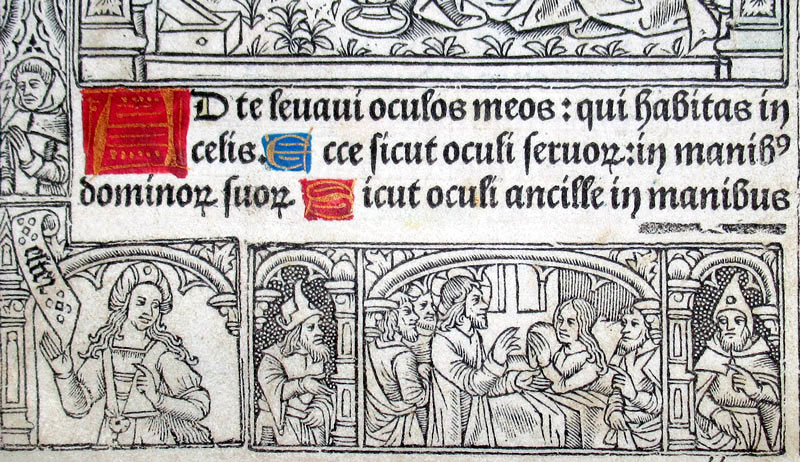 AD te leuaui oculos meos : qui habitas in
celis. Ecce sicut oculi seruoꝝ: in manibꝰ
dominoꝝ suoꝝ Sicut oculi ancille in manibus